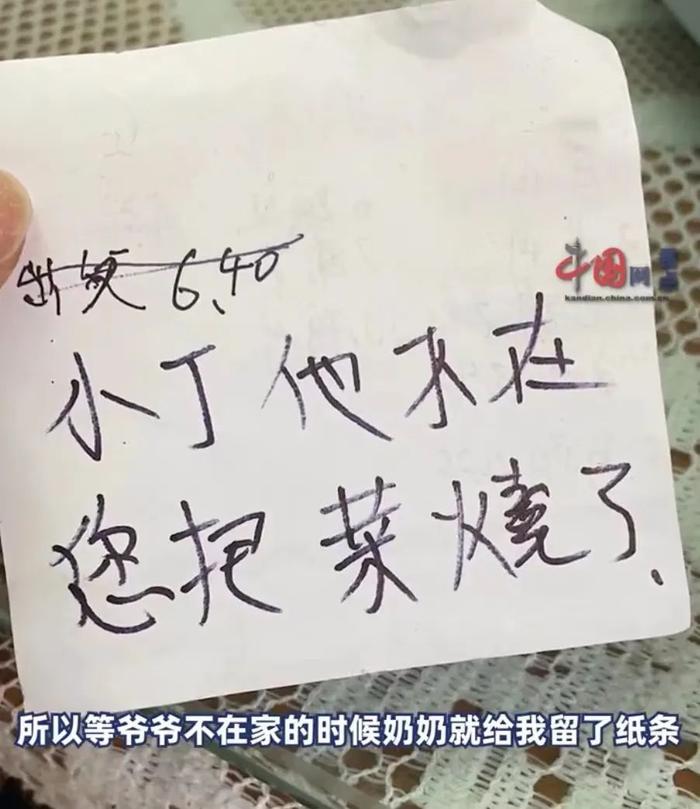 6.40
中国网
kandian.china.com.cn
小丁他不在
您把菜燒了.
所以等爷爷不在家的时候奶奶就给我留了纸条